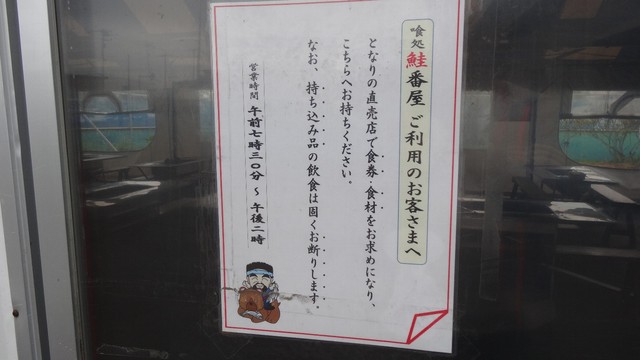 喰処 鮭番屋 ご利用のお客さまへ
となりの直売店で食券・食材をお求めになり、
こちらへお持ちください。
なお、持ち込み品の飲食は固くお断りします。
営業時間 午前七時三〇分 ～ 午後二時